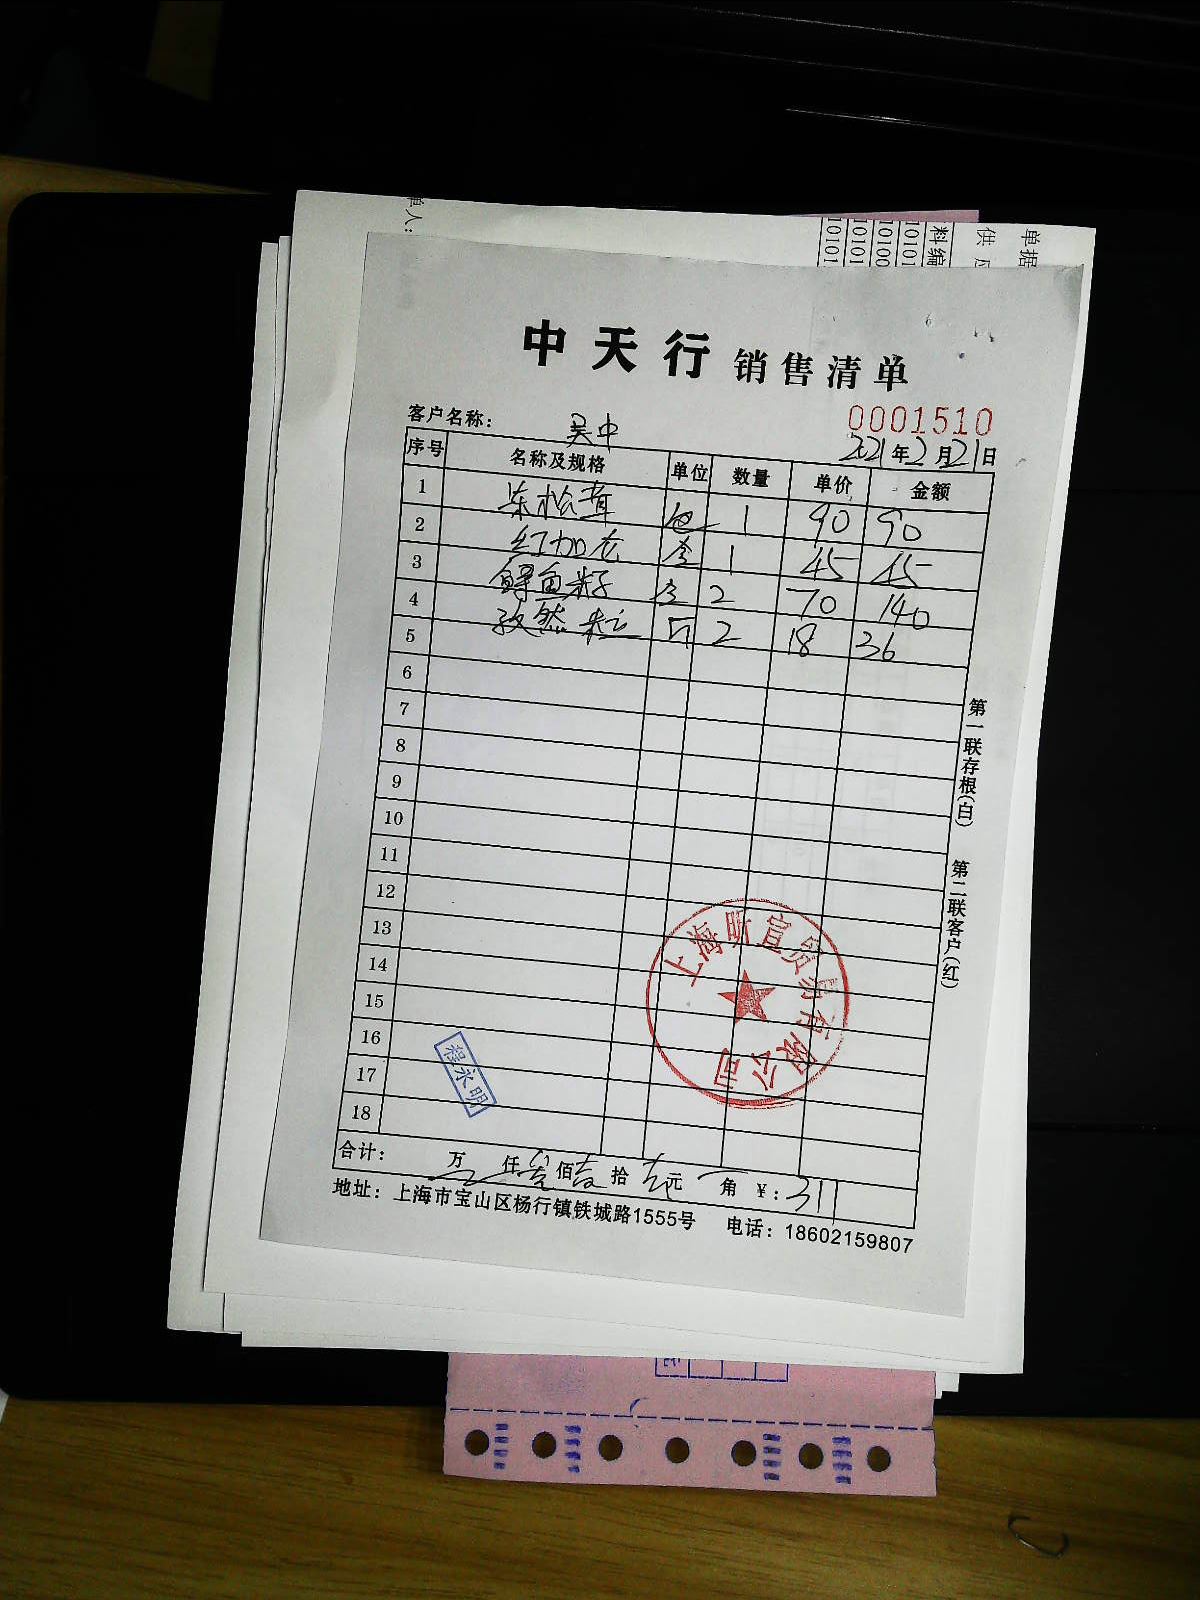 单人:
单据
供应
料编
10101
10100
10101
10101
中天行 销售清单
0001510
客户名称: 吴中
2021年2月21日
序号 名称及规格 单位 数量 单价 金额
1 冻松茸 包 1 90 90
2 红加吉 1 45 45
3 鲟鱼籽 2 70 140
4 孜然粒 瓶 2 18 36
5
6
7
8
9
10
11
12
13
14
15
16
17
18
第一联存根(白) 第二联客户(红)
上海昕宜贸易有限公司
程永明
合计: 万 仟叁佰壹拾壹元 角 ¥:311
地址:上海市宝山区杨行镇铁城路1555号 电话:18602159807